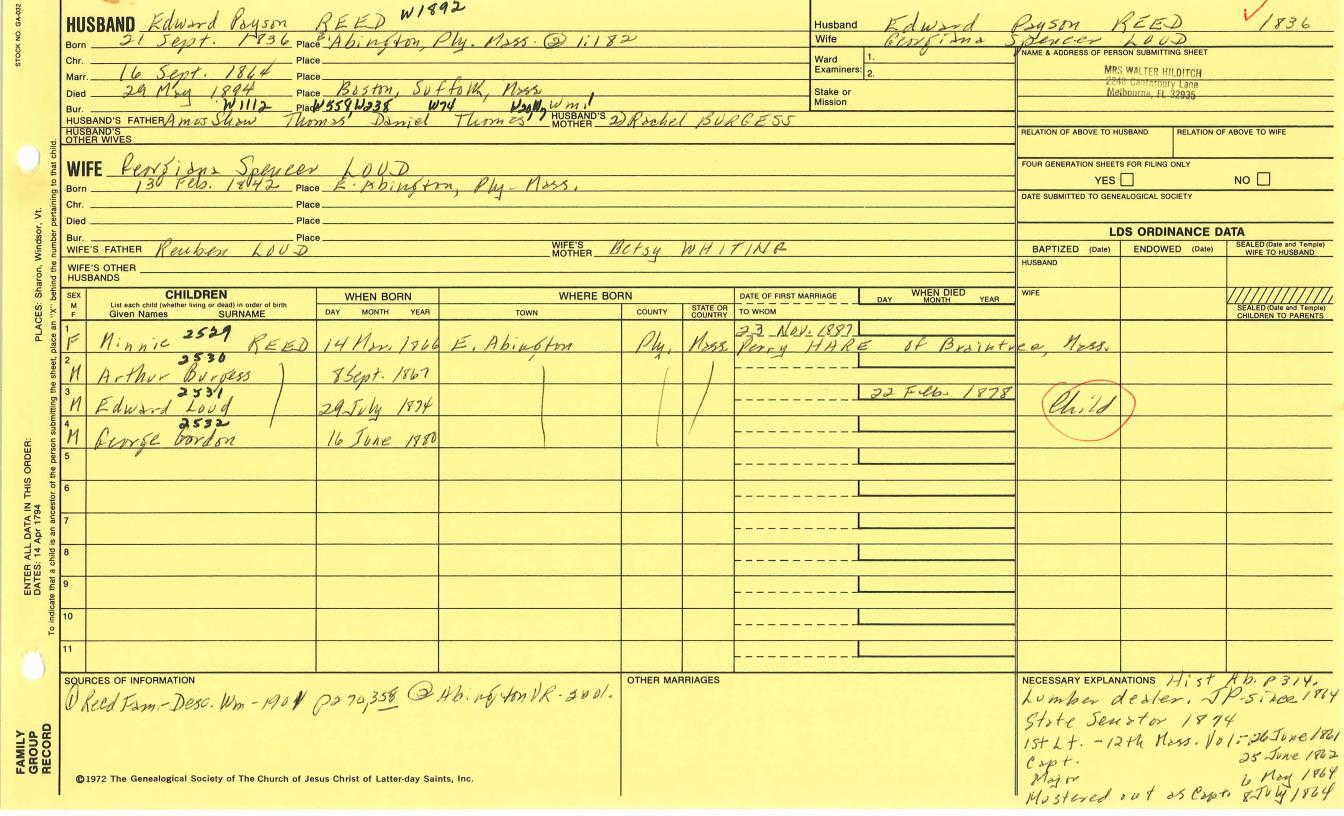 STOCK NO. GA-032
HUSBAND Edward Payson REED W1892
Born 21 Sept. 1836 Place Abington, Ply. Mass. ② 1:182
Chr. Place
Marr. 16 Sept. 1864 Place
Died 29 May 1894 Place Boston, Suffolk, Mass
Bur. W1112 Place W559 W238 W74 Wm1
HUSBAND'S FATHER Amos Shaw Thomas Daniel Thomas HUSBAND'S MOTHER 2) Rachel BURGESS
HUSBAND'S OTHER WIVES
Husband Edward Payson REED 1836
Wife Georgiana Spencer LOUD
Ward Examiners: 1.
2.
Stake or Mission
NAME & ADDRESS OF PERSON SUBMITTING SHEET
MRS WALTER HILDITCH
Canterbury Lane
Melbourne, FL 32935
RELATION OF ABOVE TO HUSBAND RELATION OF ABOVE TO WIFE
FOUR GENERATION SHEETS FOR FILING ONLY
YES NO
DATE SUBMITTED TO GENEALOGICAL SOCIETY
WIFE Georgiana Spencer LOUD
Born 13 Feb. 1842 Place E. Abington, Ply- Mass.
Chr. Place
Died Place
Bur. Place
WIFE'S FATHER Reuben LOUD WIFE'S MOTHER Betsy WHITING
WIFE'S OTHER HUSBANDS
LDS ORDINANCE DATA
BAPTIZED (Date) ENDOWED (Date) SEALED (Date and Temple) WIFE TO HUSBAND
HUSBAND
WIFE
SEALED (Date and Temple) CHILDREN TO PARENTS
SEX M F CHILDREN List each child (whether living or dead) in order of birth Given Names SURNAME
WHEN BORN DAY MONTH YEAR
WHERE BORN TOWN COUNTY STATE OR COUNTRY
DATE OF FIRST MARRIAGE TO WHOM
WHEN DIED DAY MONTH YEAR
1 F Minnie 2529 REED 14 Mar. 1866 E. Abington Ply. Mass 23 Nov. 1887 Perry HARE of Braintree, Mass.
2 M Arthur Burgess 2530 8 Sept. 1867
3 M Edward Loud 2531 29 July 1874 22 Feb. 1878 Child
4 M George Gordon 2532 16 June 1880
5
6
7
8
9
10
11
SOURCES OF INFORMATION
① Reed Fam.-Desc. Wm-1901 p270,358 ② Abington VR-2001.
OTHER MARRIAGES
NECESSARY EXPLANATIONS Hist Ab. p 314.
Lumber dealer. JP-since 1864
State Senator 1874
1st Lt. -12th Mass. Vol:-26 June 1861
Capt. 25 June 1862
Major 6 May 1864
Mustered out as Capt. 8 July 1864
©1972 The Genealogical Society of The Church of Jesus Christ of Latter-day Saints, Inc.
FAMILY GROUP RECORD
ENTER ALL DATA IN THIS ORDER:
DATES: 14 Apr 1794
PLACES: Sharon, Windsor, Vt.
To indicate that a child is an ancestor of the person submitting the sheet, place an "X" behind the number pertaining to that child.